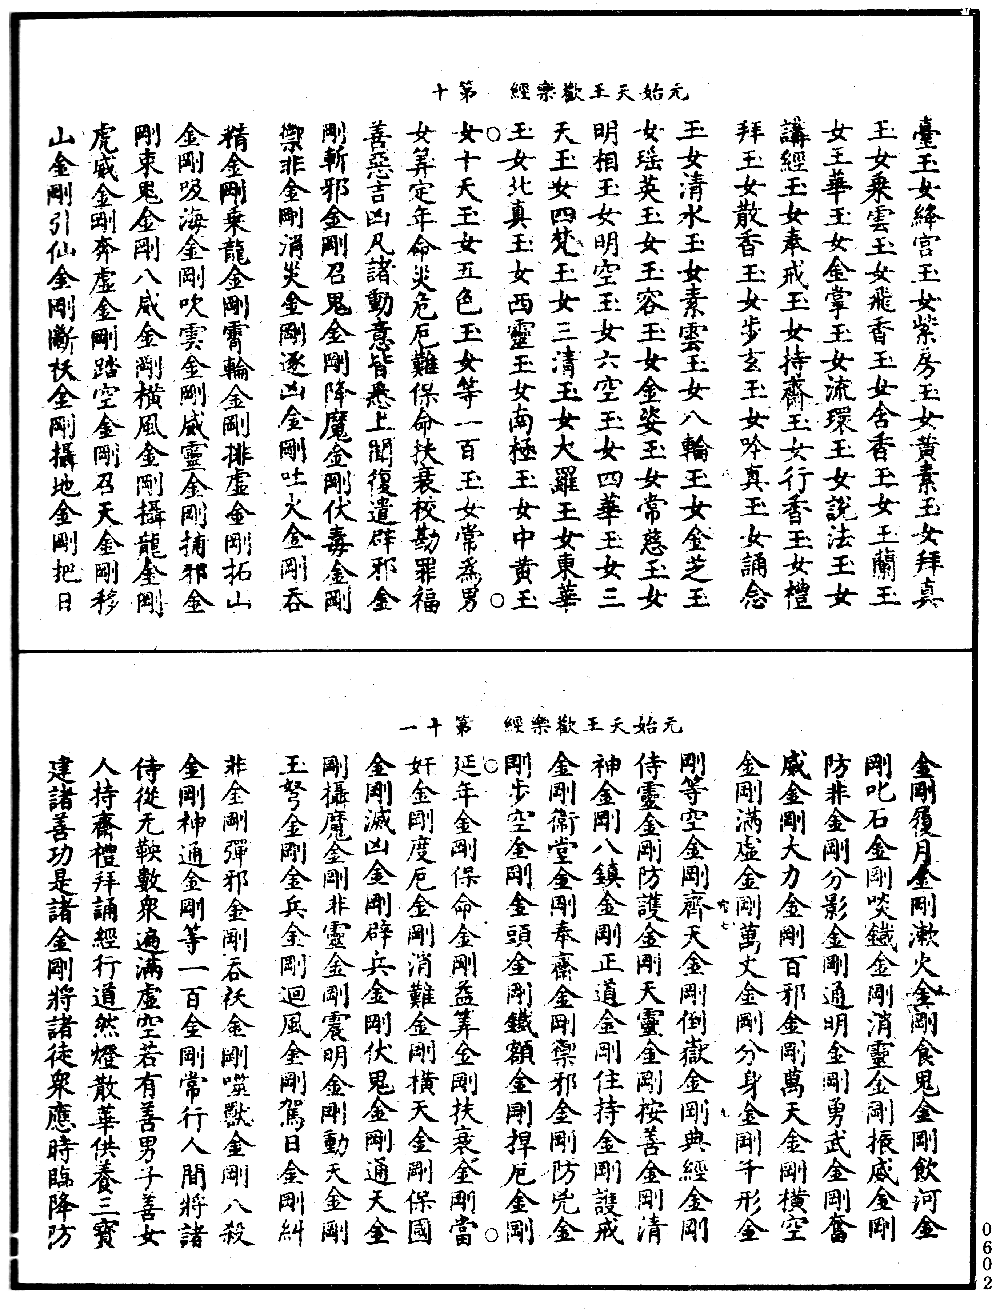 元始天王歡樂經　第十
臺玉女絳宫玉女紫房玉女黄素玉女拜真
玉女乘雲玉女飛香玉女含香玉女玉蘭玉
女玉華玉女金掌玉女流環玉女說法玉女
講經玉女奉戒玉女持齋玉女行香玉女禮
拜玉女散香玉女步玄玉女吟真玉女誦念
玉女清水玉女素雲玉女八輪玉女金芝玉
女瑶英玉女玉容玉女金姿玉女常慈玉女
明相玉女明空玉女六空玉女四華玉女三
天玉女四梵玉女三清玉女大羅玉女東華
玉女北真玉女西靈玉女南極玉女中黄玉
女十天玉女五色玉女等一百玉女常爲男
女筭定年命災危厄難保命扶衰校勘罪福
善惡吉凶凡諸動意皆悉上聞復遣辟邪金
剛斬邪金剛召鬼金剛降魔金剛伏毒金剛
禦非金剛消災金剛逐凶金剛吐火金剛吞
精金剛乘龍金剛霄輪金剛排虚金剛拓山
金剛吸海金剛吹雲金剛威靈金剛捕邪金
剛束鬼金剛八威金剛横風金剛攝龍金剛
虎威金剛奔虚金剛踏空金剛召天金剛移
山金剛引仙金剛斷祅金剛攝地金剛把日
元始天王歡樂經　第十一
金剛履月金剛漱火金剛食鬼金剛飲河金
剛叱石金剛啖鐵金剛消靈金剛振威金剛
防非金剛分影金剛通明金剛勇武金剛奮
威金剛大力金剛百邪金剛萬天金剛横空
金剛滿虚金剛萬丈金剛分身金剛千形金
剛等空金剛齊天金剛倒嶽金剛典經金剛
侍靈金剛防護金剛天靈金剛按善金剛清
神金剛八鎮金剛正道金剛住持金剛護戒
金剛衛堂金剛奉齋金剛禦邪金剛防兇金
剛步空金剛金頭金剛鐵額金剛捍厄金剛
延年金剛保命金剛益筭金剛扶衰金剛當
奸金剛度厄金剛消難金剛横天金剛保國
金剛滅凶金剛辟兵金剛伏鬼金剛通天金
剛攝魔金剛非靈金剛震明金剛動天金剛
玉弩金剛金兵金剛迴風金剛駕日金剛糾
非金剛彈邪金剛吞祅金剛噬獸金剛八殺
金剛神通金剛等一百金剛常行人間將諸
侍從无鞅數衆遍滿虚空若有善男子善女
人持齋禮拜誦經行道然燈散華供養三寶
建諸善功是諸金剛將諸徒衆應時臨降防
0602